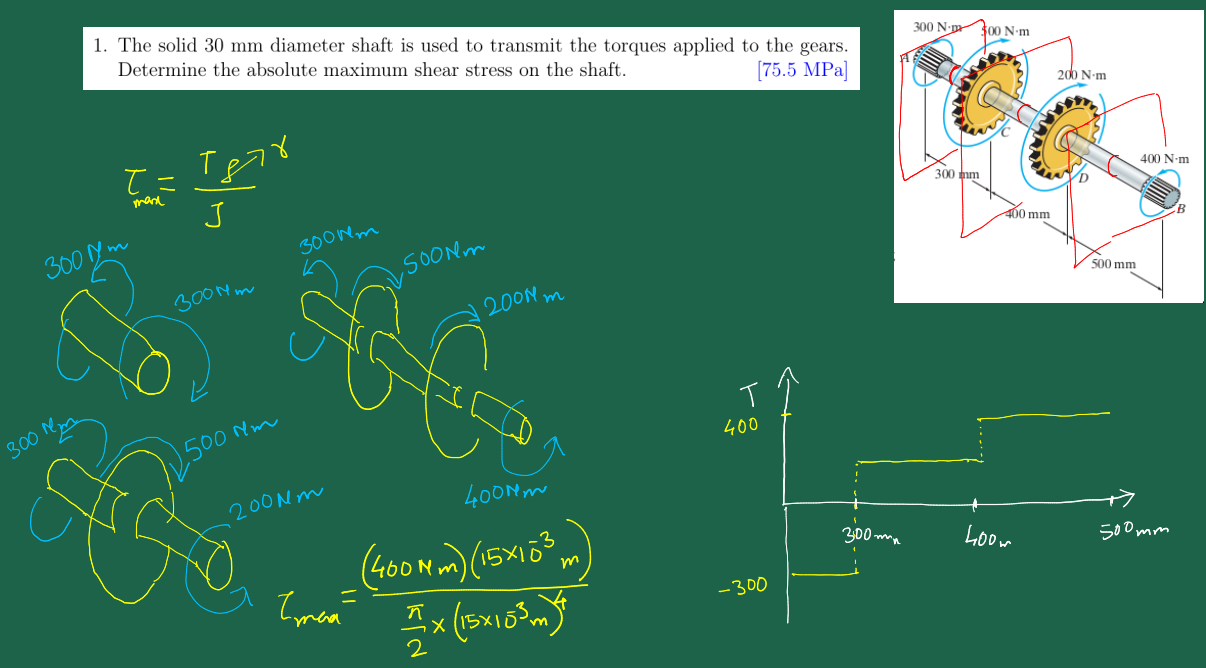 1. The solid 30 mm diameter shaft is used to transmit the torques applied to the gears.
Determine the absolute maximum shear stress on the shaft. [75.5 MPa]
300 N·m
500 N·m
200 N·m
400 N·m
A
C
D
B
300 mm
400 mm
500 mm
τmax = Tρ→r / J
300 Nm
300 Nm
300 Nm
500 Nm
200 Nm
400 Nm
300 Nm
500 Nm
200 Nm
τmax = (400 Nm)(15×10⁻³ m) / π/2 × (15×10⁻³ m)⁴
T
400
-300
300 mm
400m
500 mm